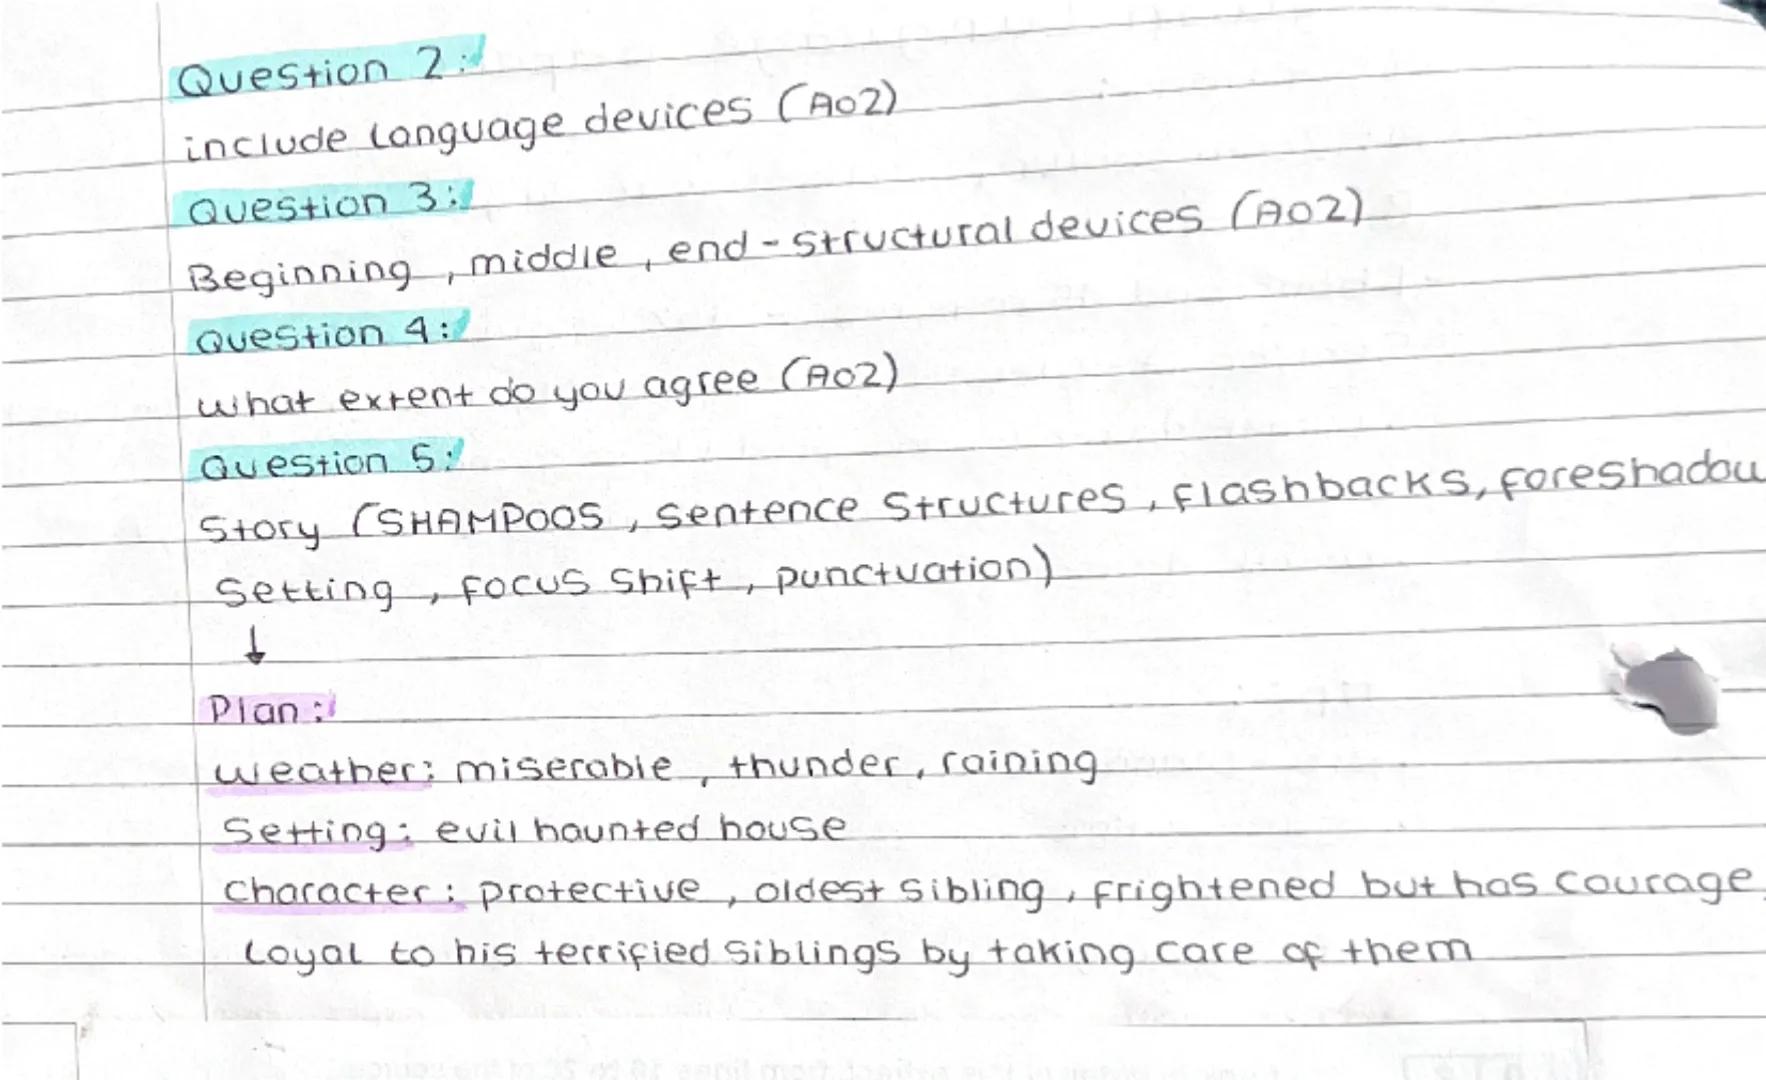 Question 2:
include language devices (AO2)
Question 3:
Beginning, middle, end - structural devices (AO2)
Question 4:
what extent do you agree (AO2)
Question 5:
Story (SHAMPOOS, sentence structures, flashbacks, foreshadow
setting, focus shift, punctuation)
↓
Plan:
weather: miserable, thunder, raining
Setting: evil haunted house
character: protective, oldest sibling, frightened but has courage,
loyal to his terrified siblings by taking care of them